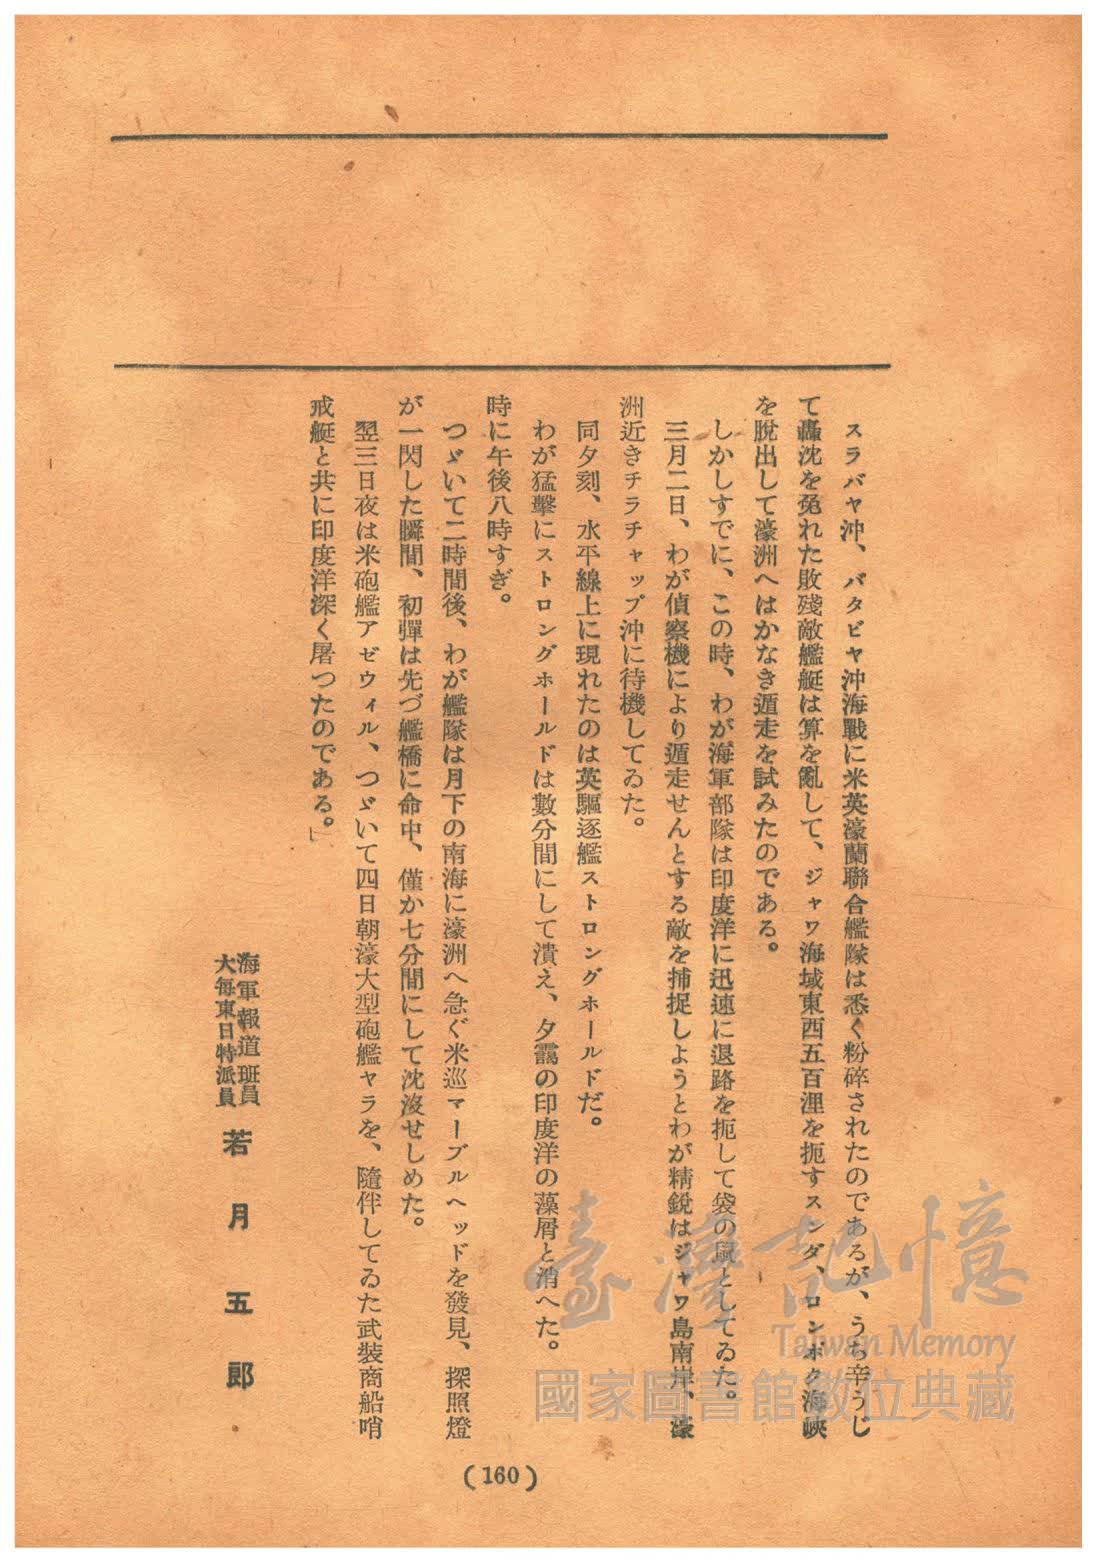 スラバヤ沖、バタビヤ沖海戰に米英濠蘭聯合艦隊は悉く粉碎されたのであるが、うち辛うじ
て轟沈を免れた敗殘敵艦艇は算を亂して、ジャワ海域東西五百浬を扼すスンダ、ロンボク海峽
を脫出して濠洲へはかなき遁走を試みたのである。
しかしすでに、この時、わが海軍部隊は印度洋に迅速に退路を扼して袋の鼠としてゐた。
三月二日、わが偵察機により遁走せんとする敵を捕捉しようとわが精銳はジャワ島南岸、濠
洲近きチラチャップ沖に待機してゐた。
同夕刻、水平線上に現れたのは英驅逐艦ストロングホールドだ。
わが猛擊にストロングホールドは數分間にして潰え、夕靄の印度洋の藻屑と消へた。
時に午後八時すぎ。
つゞいて二時間後、わが艦隊は月下の南海に濠洲へ急ぐ米巡マーブルヘッドを發見、探照燈
が一閃した瞬間、初彈は先づ艦橋に命中、僅か七分間にして沈沒せしめた。
翌三日夜は米砲艦アゼウィル、つゞいて四日朝濠大型砲艦ヤラを、隨伴してゐた武裝商船哨
戒艇と共に印度洋深く屠つたのである。」
海軍報道班員
大每東日特派員
若月五郎
(160)
臺灣記憶
Taiwan Memory
國家圖書館數位典藏